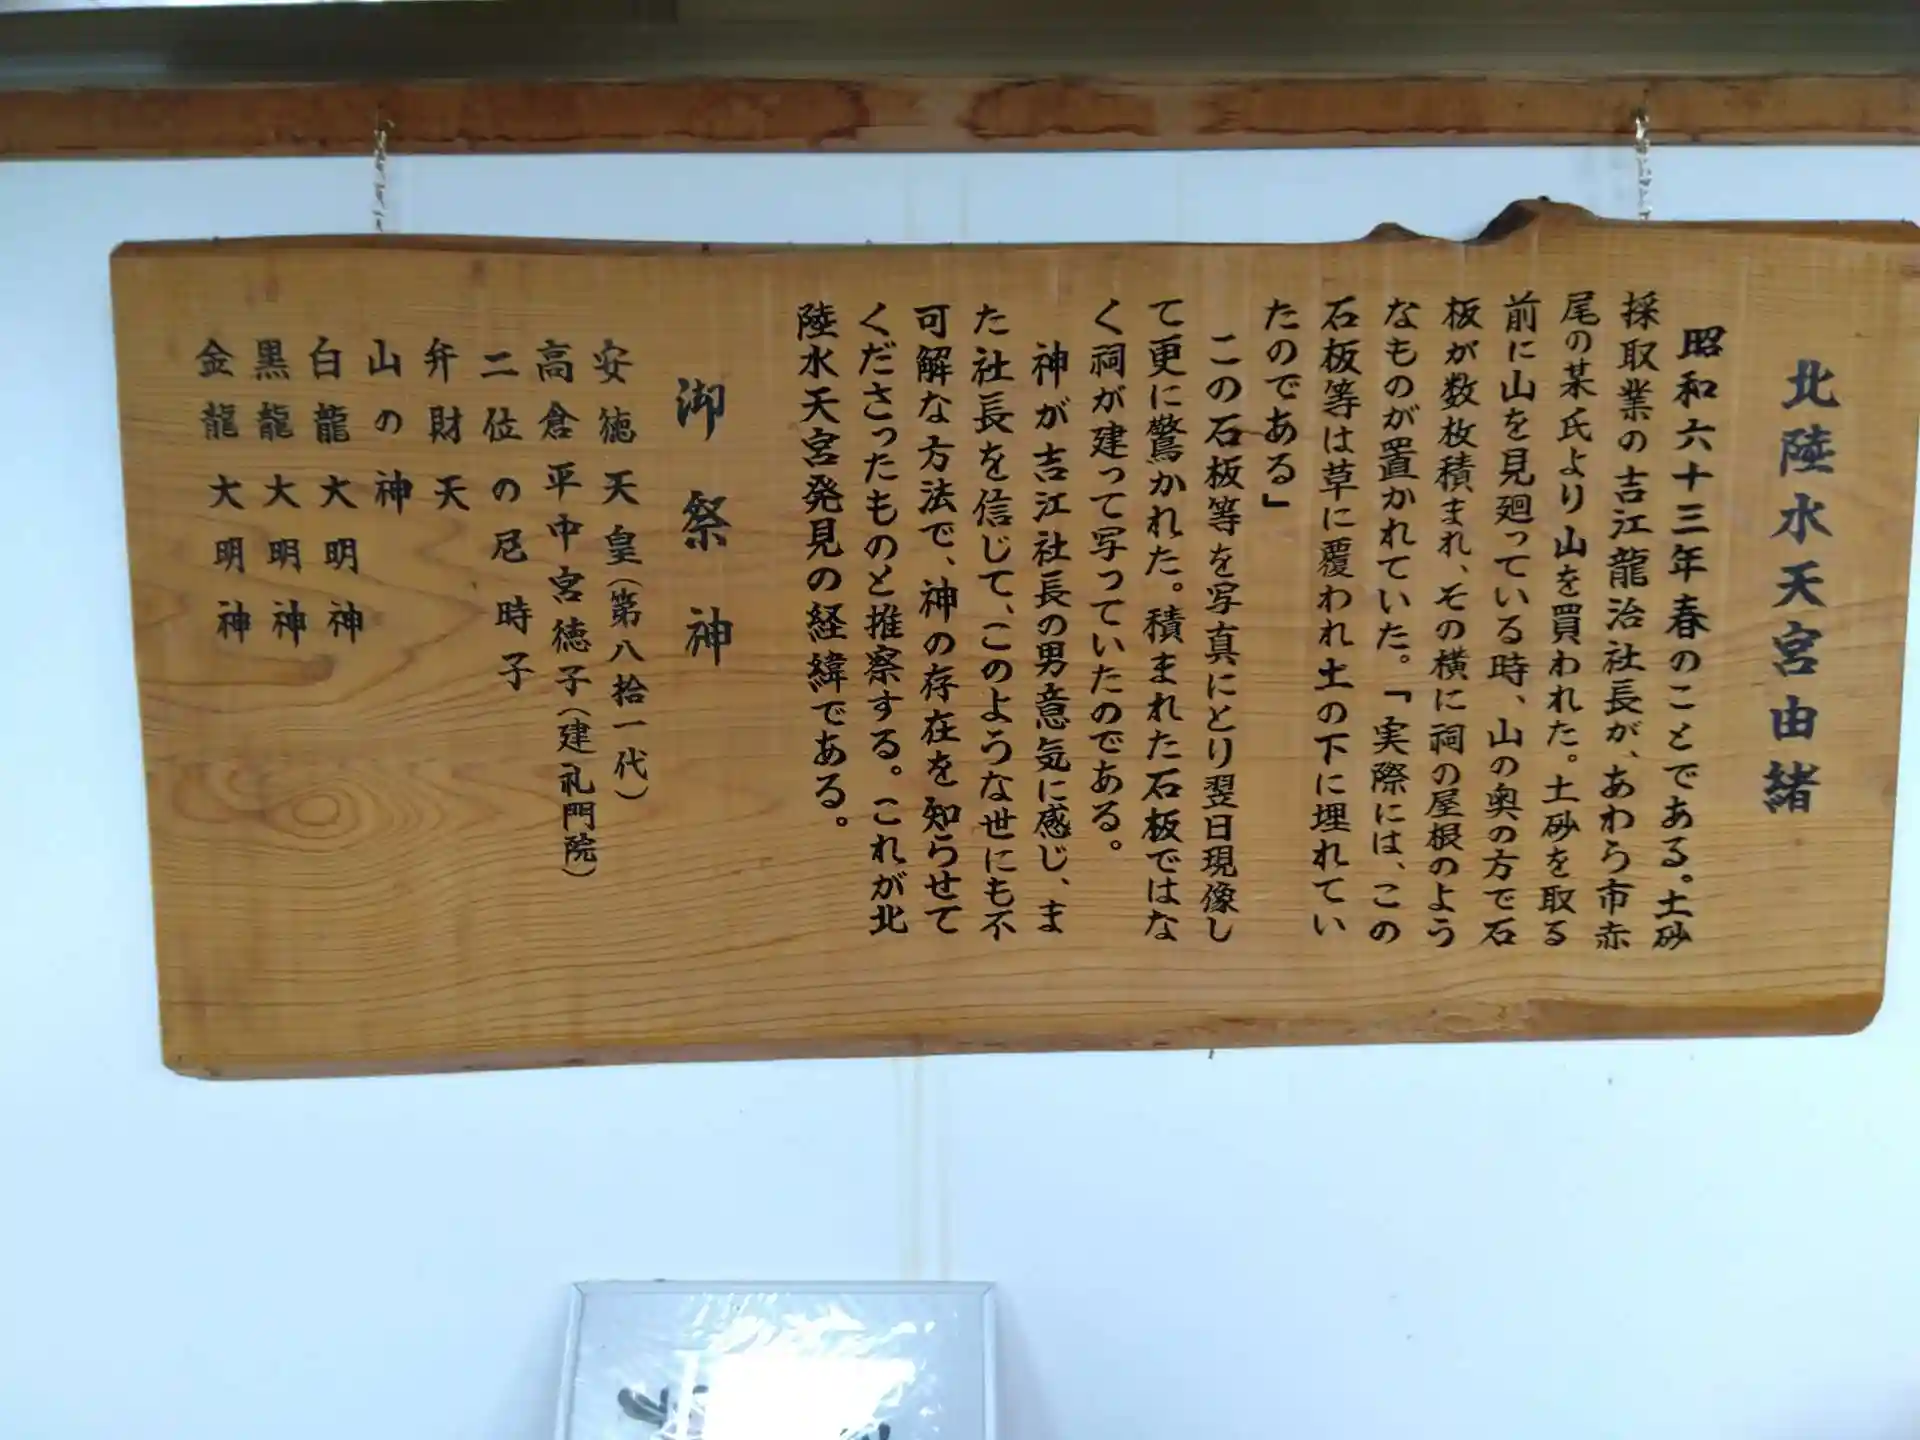 北陸水天宮由緒
昭和六十三年春のことである。土砂
採取業の吉江龍治社長が、あわら市赤
尾の某氏より山を買われた。土砂を取る
前に山を見廻っている時、山の奥の方で石
板が数枚積まれ、その横に祠の屋根のよう
なものが置かれていた。「実際には、この
石板等は草に覆われ土の下に埋れてい
たのである」
この石板等を写真にとり翌日現像し
て更に驚かれた。積まれた石板ではな
く祠が建って写っていたのである。
神が吉江社長の男意気に感じ、ま
た社長を信じて、このような世にも不
可解な方法で、神の存在を知らせて
くださったものと推察する。これが北
陸水天宮発見の経緯である。
御祭神
安徳天皇(第八拾一代)
高倉平中宮徳子(建礼門院)
二位の尼時子
弁財天
山の神
白龍大明神
黒龍大明神
金龍大明神